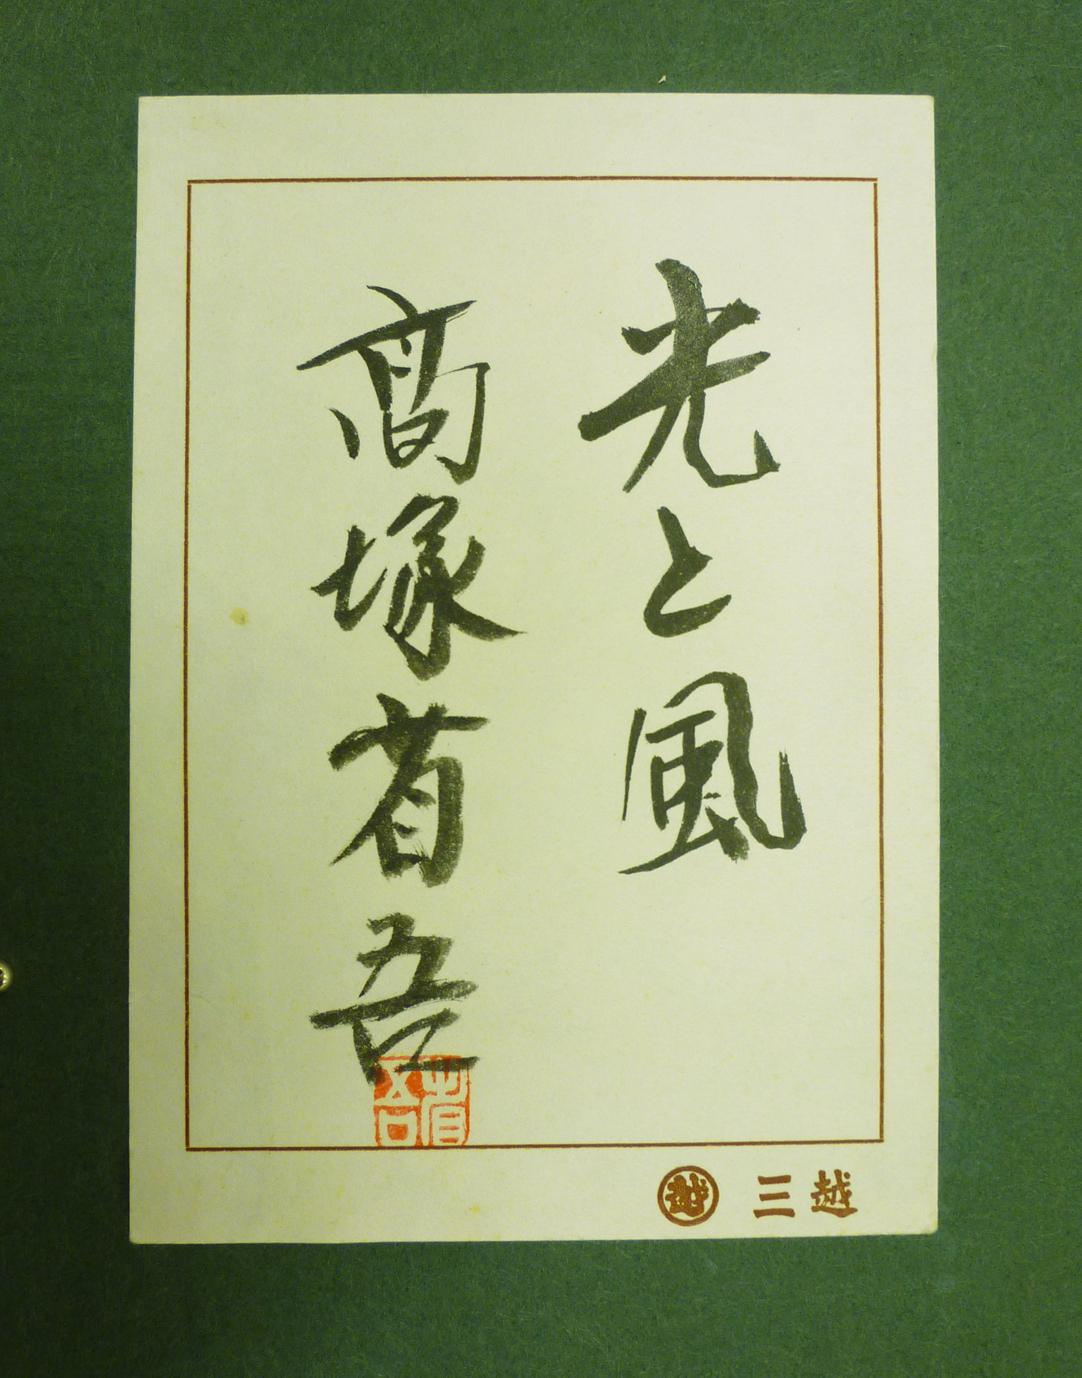 光と風
髙塚省吾
省吾
越 三越